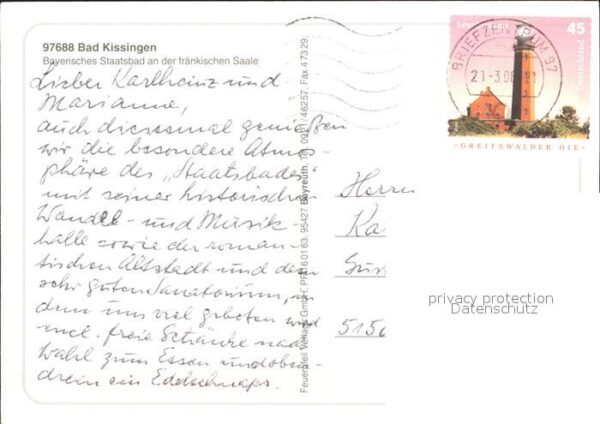 97688 Bad Kissingen
Bayerisches Staatsbad an der fränkischen Saale
Lieber Karlheinz und
Marianne,
auch diesesmal genießen
wir die besondere Atmo-
sphäre des "Staatsbades"
mit seiner historischen
Wandel- und Musik
halle sowie der roman-
tischen Altstadt und dem
sehr guten Sanatorium, in
dem uns viel geboten wird
incl. freie Getränke nach
Wahl zum Essen und oben
drein ein Edelschnaps.
Feuerpfeil Verlags GmbH, PF 16 01 63, 95427 Bayreuth, Tel. 0921/46257, Fax 47329
45
Deutschland
BRIEFZENTRUM 97
21
GREIFSWALDER OIE
Herrn
Ka
5150
privacy protection
Datenschutz